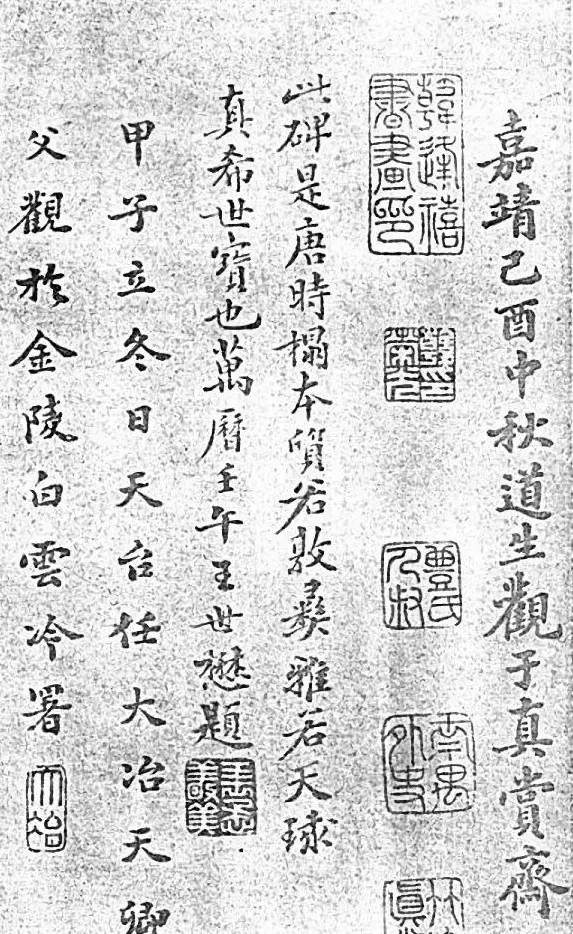 嘉靖己酉中秋道生觀于真賞齋
韓逢禧
書畫印
豐氏
人叔
此碑是唐時搨本質若敦彝雅若天球
真希世寶也萬曆壬午王世懋題
甲子立冬日天台任大冶天卿
父觀於金陵白雲冷署
大冶